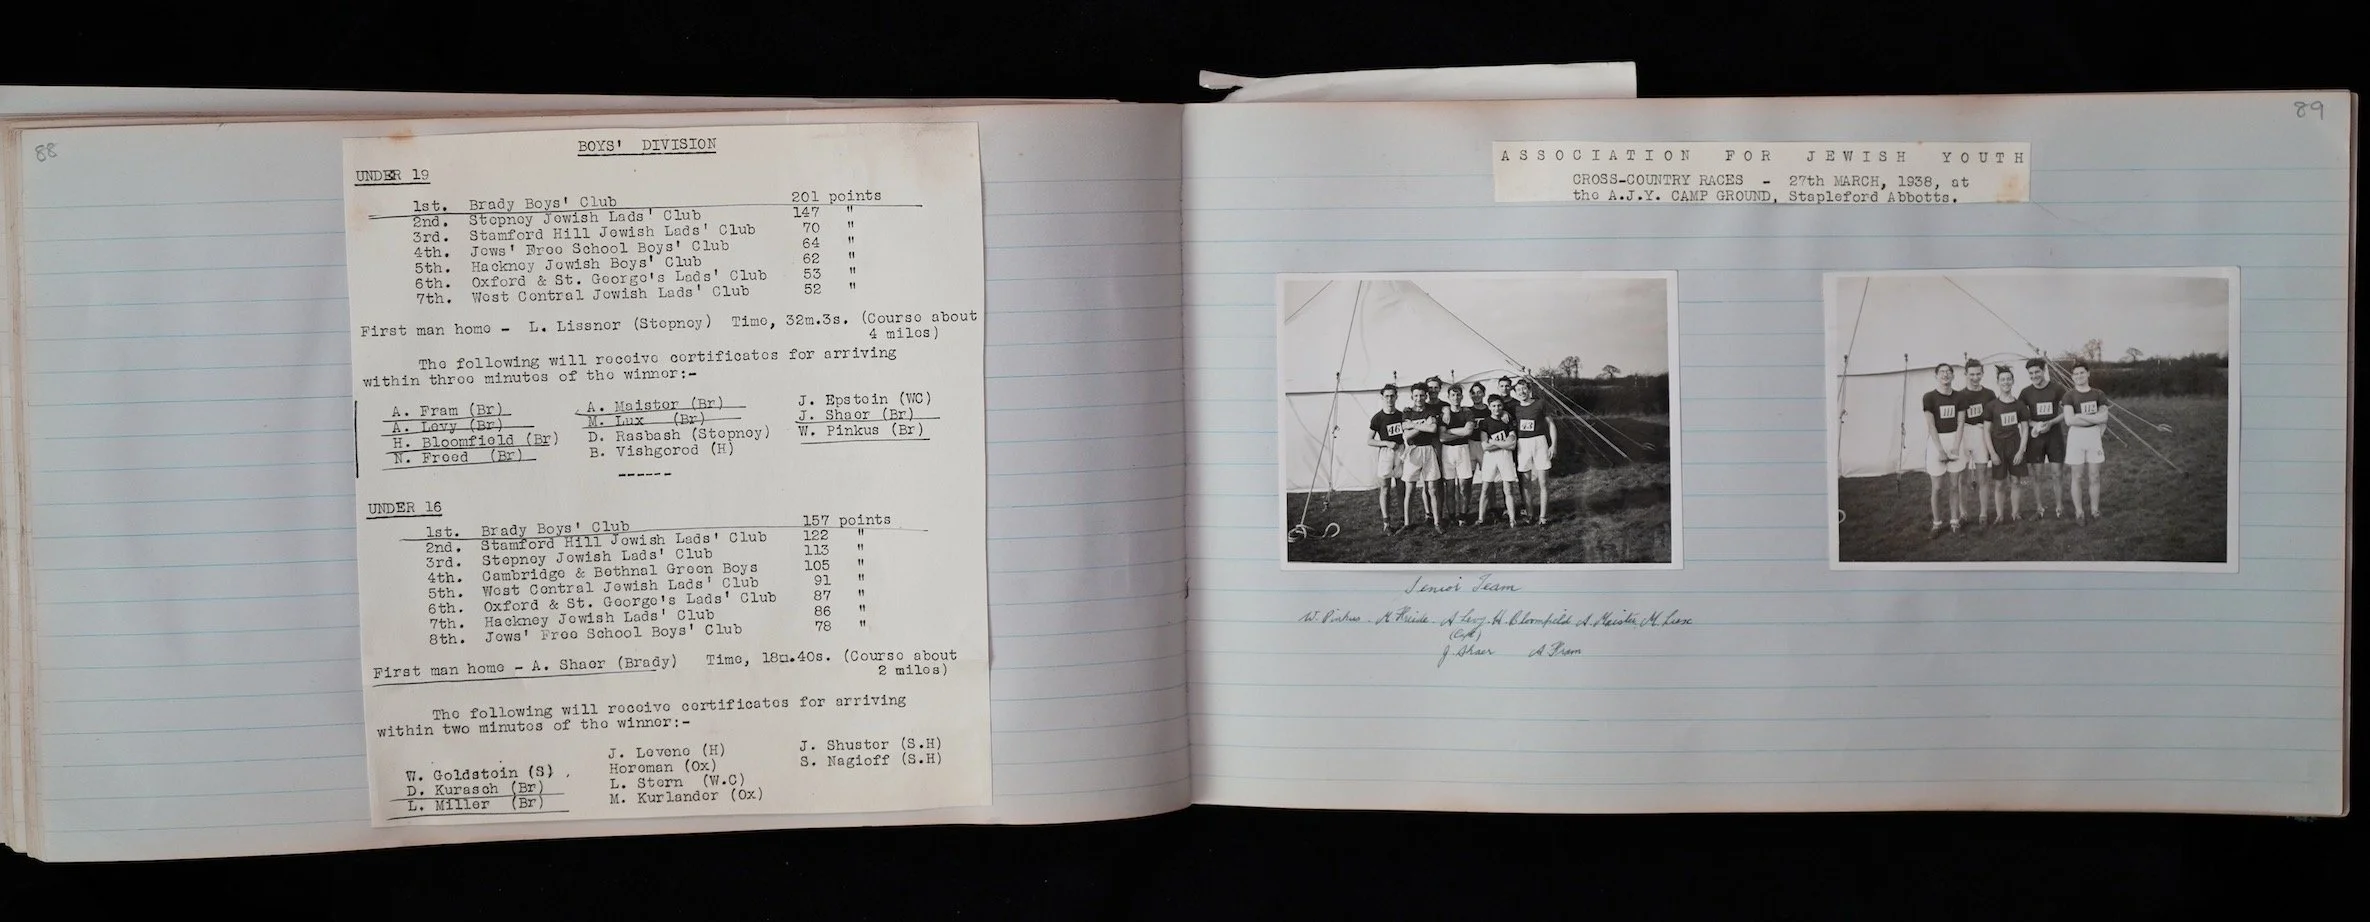 88
BOYS' DIVISION
UNDER 19
1st. Brady Boys' Club 201 points
2nd. Stepney Jewish Lads' Club 147 "
3rd. Stamford Hill Jewish Lads' Club 70 "
4th. Jews' Free School Boys' Club 64 "
5th. Hackney Jewish Boys' Club 62 "
6th. Oxford & St. George's Lads' Club 53 "
7th. West Central Jewish Lads' Club 52 "
First man home - L. Lissner (Stepney) Time, 32m.3s. (Course about
4 miles)
The following will receive certificates for arriving
within three minutes of the winner:-
A. Fram (Br) A. Maister (Br) J. Epstein (WC)
A. Levy (Br) M. Lux (Br) J. Shaer (Br)
H. Bloomfield (Br) D. Rasbash (Stepney) W. Pinkus (Br)
N. Freed (Br) B. Vishgorod (H)
------
UNDER 16
1st. Brady Boys' Club 157 points
2nd. Stamford Hill Jewish Lads' Club 122 "
3rd. Stepney Jewish Lads' Club 113 "
4th. Cambridge & Bethnal Green Boys 105 "
5th. West Central Jewish Lads' Club 91 "
6th. Oxford & St. George's Lads' Club 87 "
7th. Hackney Jewish Lads' Club 86 "
8th. Jews' Free School Boys' Club 78 "
First man home - A. Shaer (Brady) Time, 18m.40s. (Course about
2 miles)
The following will receive certificates for arriving
within two minutes of the winner:-
J. Levene (H) J. Shuster (S.H)
W. Goldstein (S) Horeman (Ox) S. Nagioff (S.H)
D. Kurasch (Br) L. Stern (W.C)
L. Miller (Br) M. Kurlander (Ox)
89
ASSOCIATION FOR JEWISH YOUTH
CROSS-COUNTRY RACES - 27th MARCH, 1938, at
the A.J.Y. CAMP GROUND, Stapleford Abbotts.
46
41
43
111
113
116
114
112
Senior Team
W. Pinkus - A. Levy. H. Bloomfield A. Maister, M. Luxe
(Capt)
J. Shaer A Fram